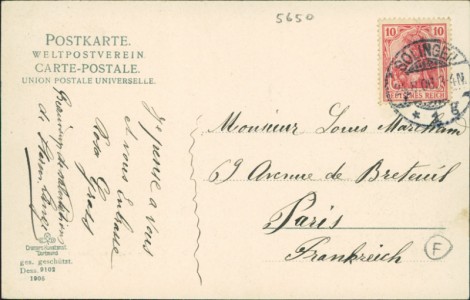 5650
POSTKARTE.
WELTPOSTVEREIN.
CARTE-POSTALE.
UNION POSTALE UNIVERSELLE.
10 10
DEUTSCHES REICH
SOLINGEN
Je pense a vous
et vous Embrasse
Rosa
Monsieur Louis
69 Avenue de Breteuil
Paris
Frankreich
F
Dortmund
ges. geschützt.
Dess. 9102
1905